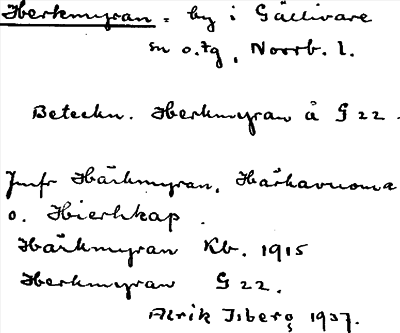 Herkmyran = by i Gällivare
sn o. tg, Norrb. l.
Beteckn. Herkmyran å G 22.
Jmfr Härkmyran, Härkavuoma
o. Hierkkap.
Härkmyran Kb. 1915
Herkmyran G 22.
Alrik Isberg 1937.